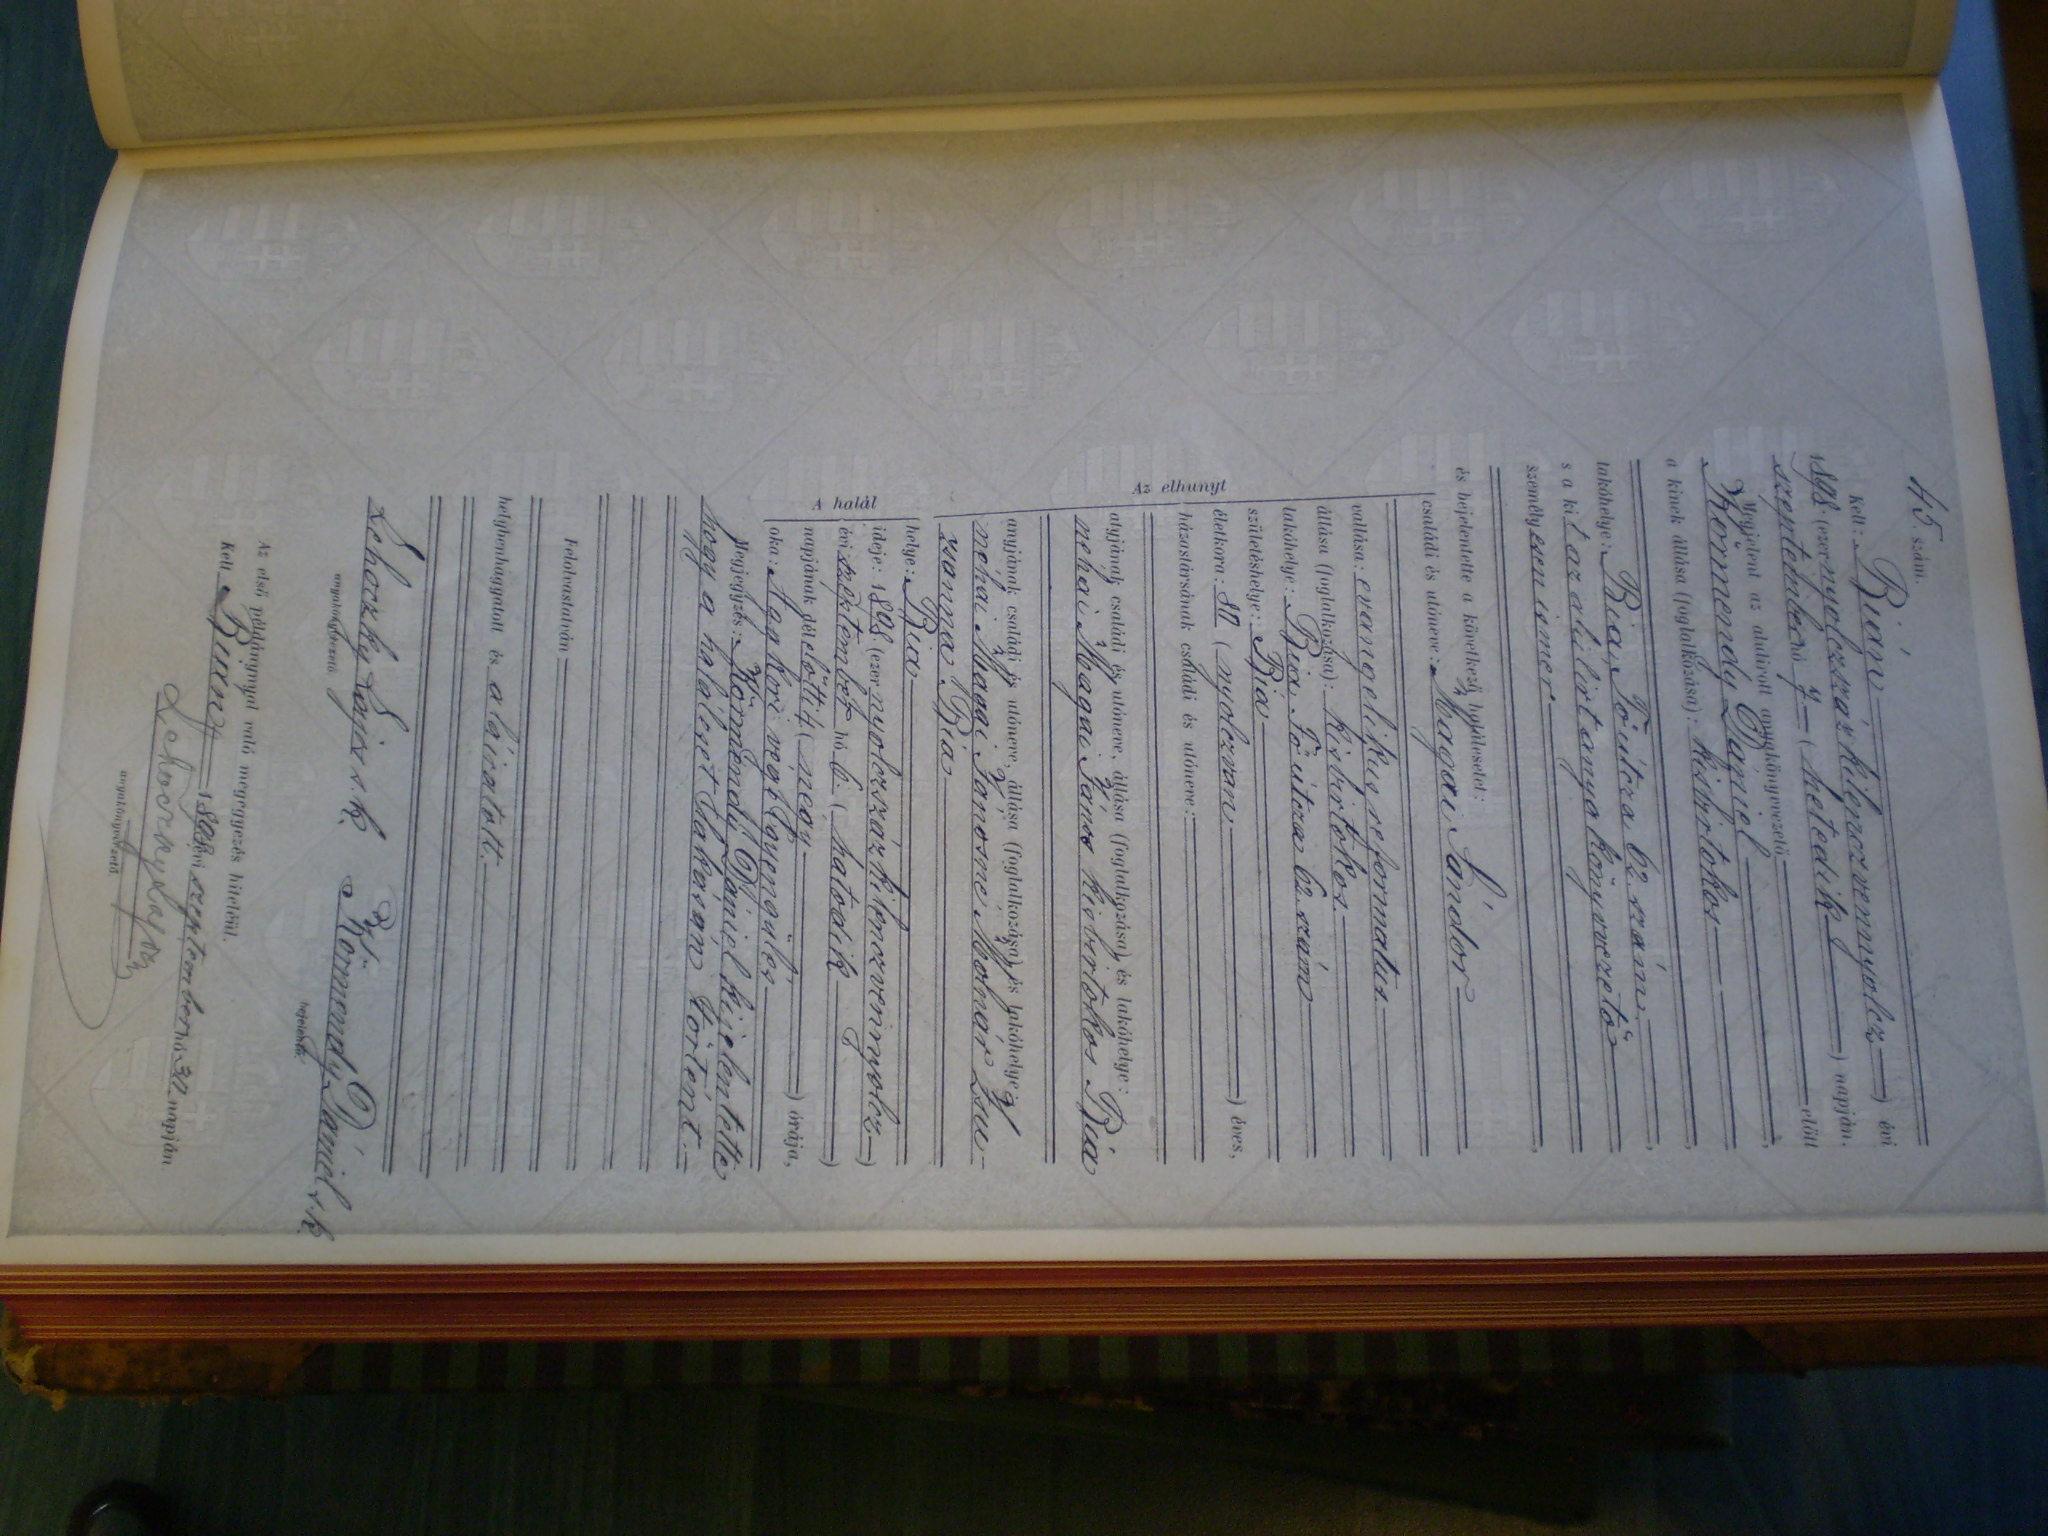 45. szám.
Kelt: Bián
1898 (ezernyolczszázkilenczvennyolcz) évi
szeptember hó 7. (hetedik) napján.
Megjelent az alulirott anyakönyvvezető előtt
Körmendy Dániel,
a kinek állása (foglalkozása): kisbirtokos
lakóhelye: Bia, Főútcza 62. szám,
s a kit az alúlirt anyakönyvvezető
személyesen ismer
és bejelentette a következő halálesetet:
családi és utóneve: Magai Sándor
vallása: evangelikus reformatus
állása (foglalkozása): kisbirtokos.
lakóhelye: Bia, Főútcza 62. szám
születéshelye: Bia
életkora: 80 (nyolczvan) éves,
házastársának családi és utóneve:
Az elhunyt
atyjának családi és utóneve, állása (foglalkozása) és lakóhelye:
néhai Magai János kisbirtokos Bia
anyjának családi és utóneve, állása (foglalkozása) és lakóhelye:
néhai Magai Jánosné Molnár Zsu-
zsanna Bia
A halál
helye: Bia
ideje: 1898 (ezernyolczszázkilenczvennyolcz)
évi szeptember hó 6. (hatodik)
napjának délelőtti 4 (négy) órája,
oka: Aggkori végelgyengülés
Megjegyzés: Körmendy Dániel kijelentette
hogy a haláleset lakásán történt.
Felolvastatván
helybenhagyatott és aláiratott.
Lehoczky Lajos s. k. Körmendy Dániel s. k.
anyakönyvvezető bejelentő.
Az első példánynyal való megegyezés hiteléül.
Kelt Bián, 1898 évi szeptember hó 30 napján
Lehoczky Lajos
anyakönyvvezető.